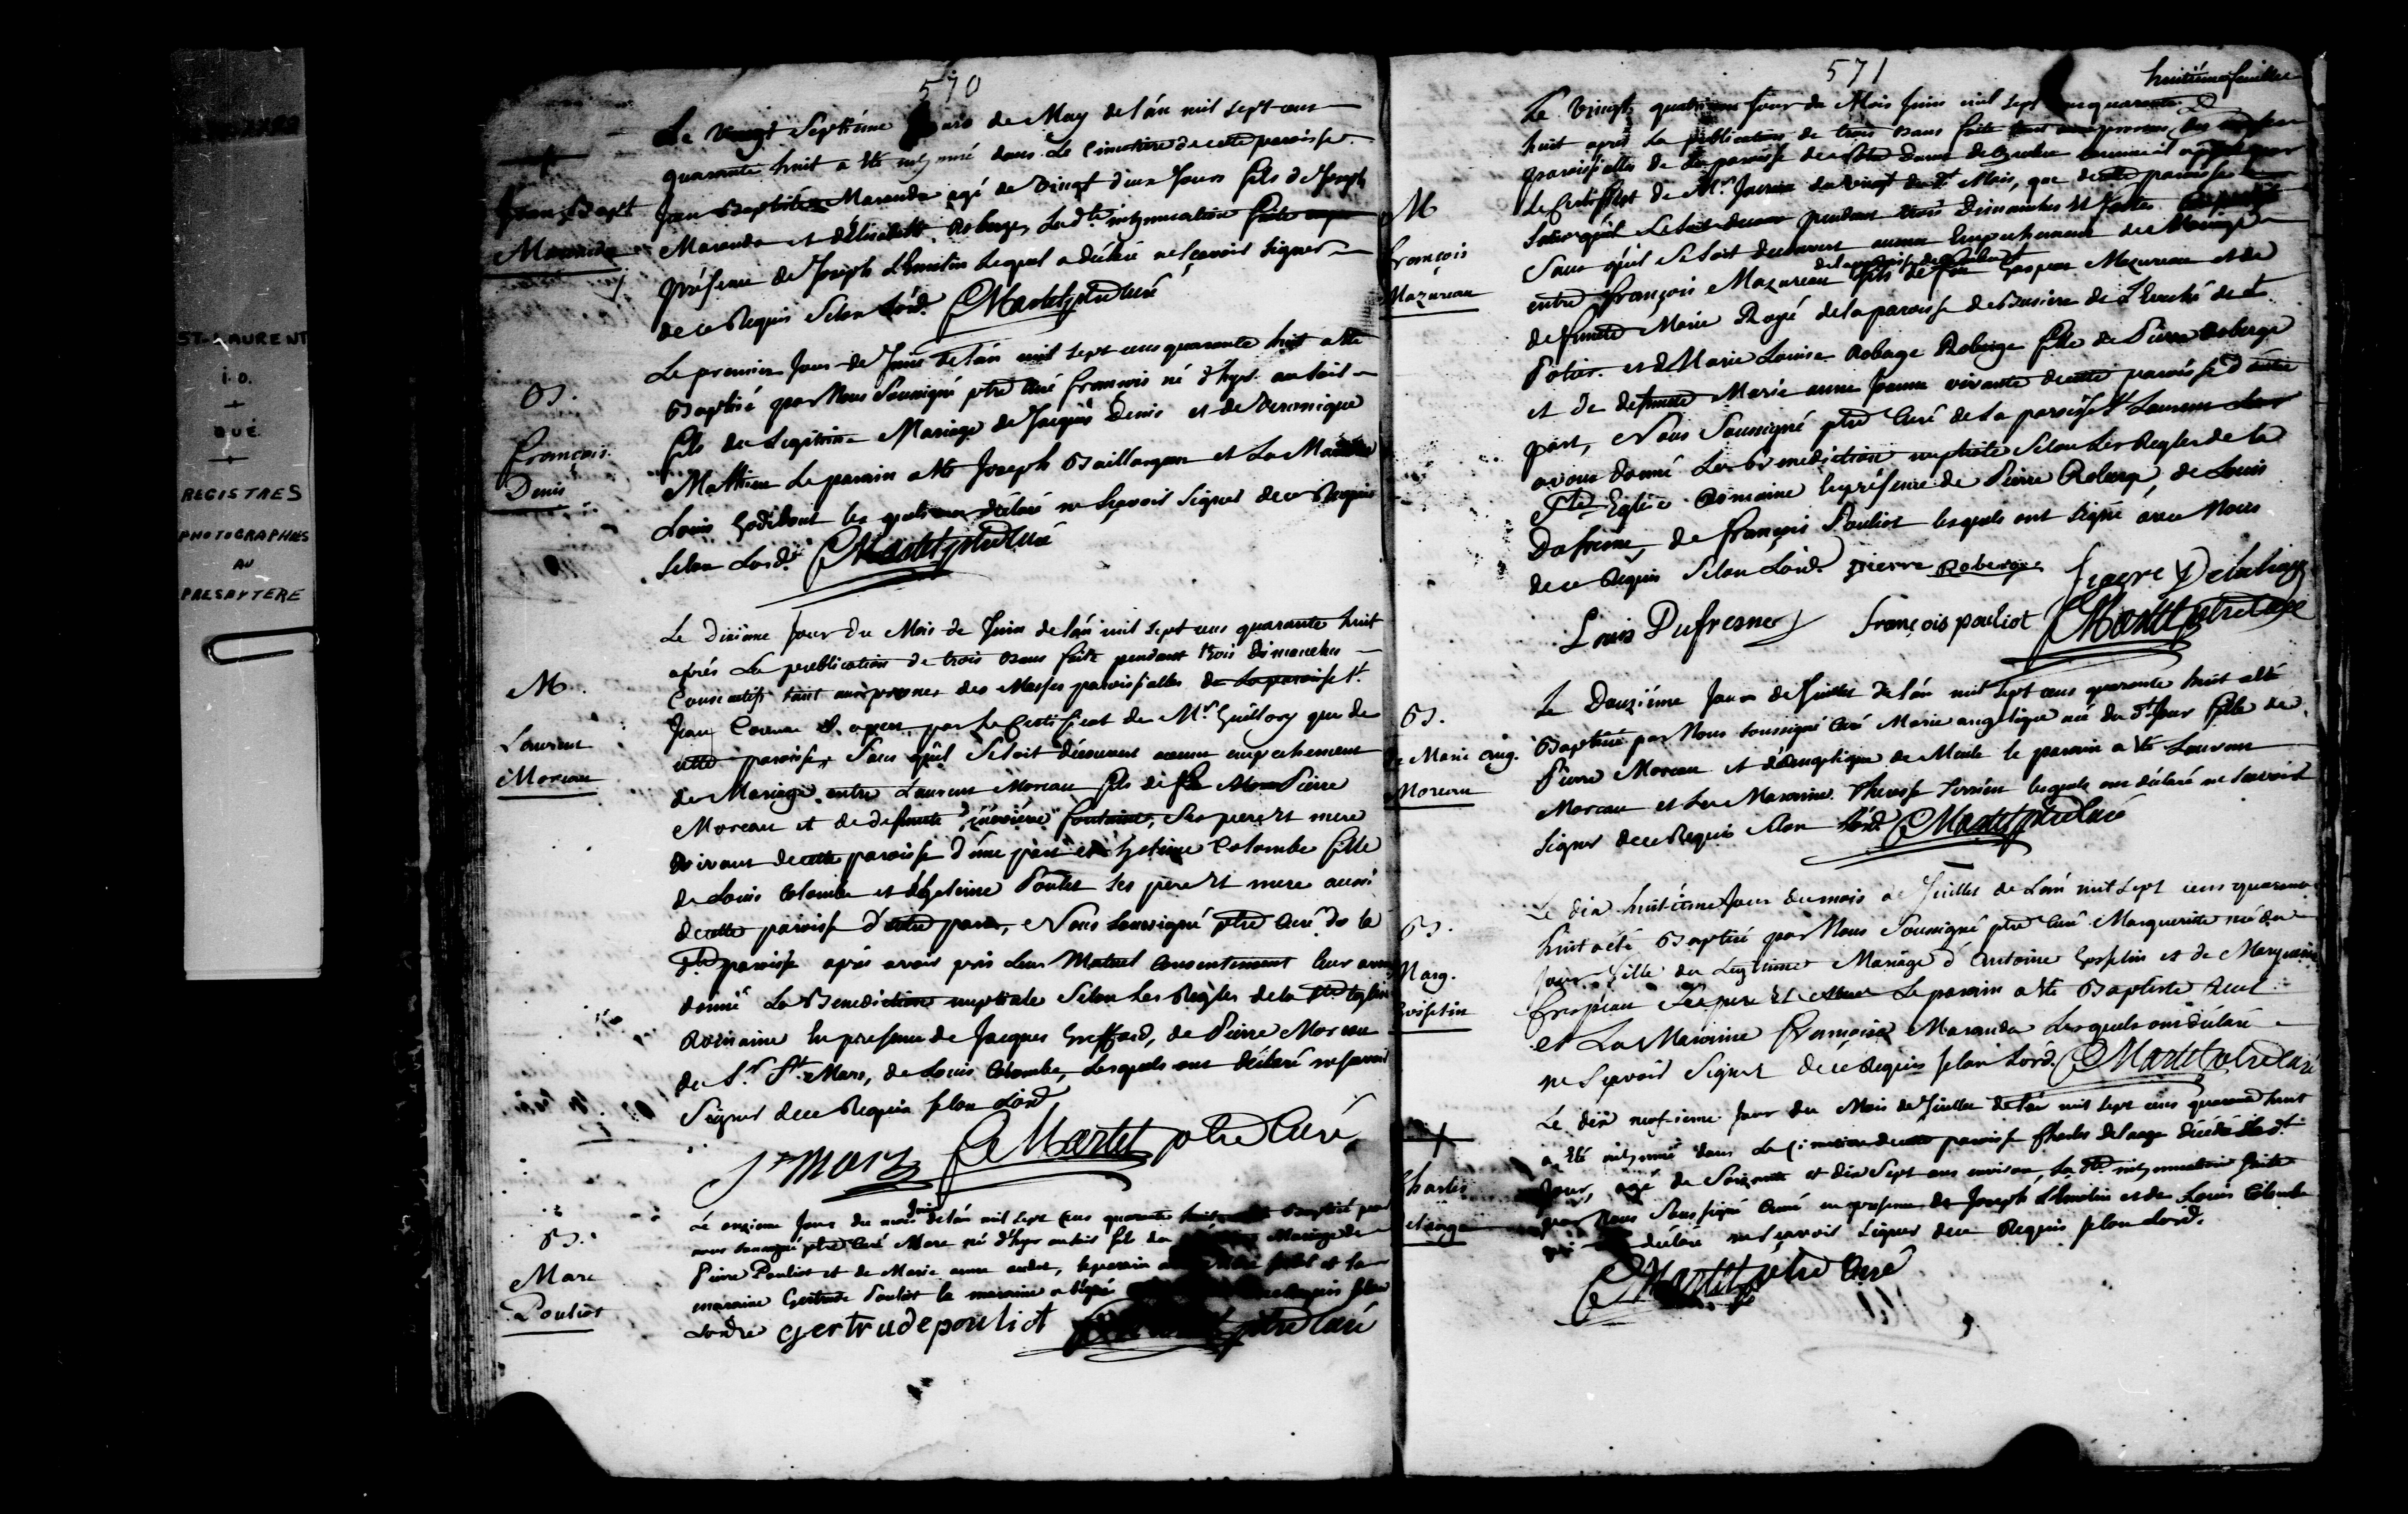 ST-LAURENT
I.O.
QUE.
REGISTRES
PHOTOGRAPHIES
AU
PRESBYTERE
570
Le vingt Septième Jour de May de l'an mil sept cens
quarante huit a été inhumé dans le Cimetiere de cette paroisse
Jean Baptiste Maranda agé de vingt deux Jours fils de Joseph
Maranda et d'Elisabeth Roberge, Lad.te inhumation faite
présence de Joseph Lemelin lequel a déclaré ne sçavoir signer
de ce Requis Selon Lord. Martel ptre curé
Jean Bapt
Maranda
B.
François
Denis
Le premier Jour de Juin de l'an mil sept cens quarante huit a été
Baptisé par Nous Soussigné ptre Curé François né d'hyer au soir
fils du Legitime Mariage de Jacques Denis et de Veronique
Mathieu Le parain a été Joseph Baillargeon et La Maraine
Louise Godbout les quels ont déclaré ne Sçavoir Signer de ce Requis
Selon Lord. Martel ptre Curé
M.
Laurent
Moreau
Le dixième Jour du Mois de Juin de l'an mil sept cens quarante huit
après La publication de trois bans faite pendant trois dimanches
Consecutifs tant aux prones des Messes paroissialles de La paroisse St
Jean Comme il apert par le Certificat de Mr. Guillory que de
cette paroisse, Sans qu'il Se soit découvert aucun empechement
de Mariage entre Laurent Moreau fils de Pierre
Moreau et de defunte Fontaine, Ses pere et mere
vivant de cette paroisse d'une part et Colombe fille
de Louis Colombe et Poulet Ses pere et mere aussi
de cette paroisse d'autre part, Nous Soussigné ptre Curé de la
dte paroisse après avoir pris Leur Mutuel Consentement leur avons
donné La Benediction nuptiale Selon Les Regles de la Ste Eglise
Romaine En presence de Jacques Greffard, de Pierre Moreau
du Sr St. Mars, de Louis Colombe, Lesquels ont déclaré ne sçavoir
Signer de ce Requis selon Lord
St Mars Martel ptre Curé
B.
Marc
Pouliot
Le onzieme Jour du mois Juin de l'an mil sept Cens quarante huit Baptisé par
nous Soussigné ptre Curé Marc né d'hyer au soir fils du Mariage de
Pierre Pouliot et de Marie anne audet, le parain et la
maraine Gertrude Pouliot la maraine a signé Requis selon
Lordre gertrude pouliot ptre Curé
571
huitième feuillet
M
François
Mazureau
Le vingt quatrieme Jour du Mois Juin mil sept quarante
huit après La publication de trois bans faite
paroissialles de la paroisse de Notre Dame de Quebec comme il apert par
le Certificat de Mr. Jacrau du vingt du dt. Mois, que de cette paroisse
pendant trois Dimanches et festes
Sans qu'il Se soit decouvert aucun Empechement de Mariage
entre François Mazureau fils de feu Gaspar Mazureau et de
defunte Marie Rayé de la paroisse de de L'Eveché de
Potier et de Marie Louise Robage Roberge fille de Pierre Roberge
et de defunte Marie anne Jeanne vivante de cette paroisse d'autre
part, Nous Soussigné ptre Curé de La paroisse St Laurent Leur
avons donné La benediction nuptiale Selon Les Regles de la
Ste Eglise Romaine En présence de Pierre Roberge, de Louis
Dufresne, de François Pouliot lesquels ont signé avec Nous
de ce Requis Selon Lord. pierre Roberge
Louis Dufresne françois pouliot Martel ptre curé
B.
Marie ang.
Moreau
Le Douzième Jour de Juillet de l'an mil sept cens quarante huit a été
Baptisé par Nous soussigné Curé Marie angelique née du dt Jour fille de
Pierre Moreau et d'angelique de Meule le parain a été Laurent
Moreau et La Maraine Therese Terrien lesquels ont déclaré ne Sçavoir
Signer de ce Requis Selon Lord. Martel ptre Curé
B.
Marg.
Gosselin
Le dix huitieme Jour du mois de Juillet de L'an mil sept cens quarante
huit a été Baptisé par Nous Soussigné ptre Curé Marguerite née du
Jour fille du Legitime Mariage d'Antoine Gosselin et de Marguerite
Crespeau Ses pere et Mere Le parain a été Baptiste
et La Maraine Françoise Maranda Lesquels ont déclaré
ne Sçavoir Signer de ce Requis selon Lord. Martel ptre Curé
Charles
delaage
Le dix neufieme Jour du Mois de Juillet de l'an mil sept cens quarante huit
a été inhumé dans Le Cimetiere de cette paroisse Charles delaage décédé le dt.
Jour, agé de Soixante et dix Sept ans environ, La dte inhumation faite
par Nous Soussigné Curé en presence de Joseph Lemelin et de Louis Colombe
qui déclaré ne sçavoir Signer de ce Requis Selon Lord.
Martel ptre Curé